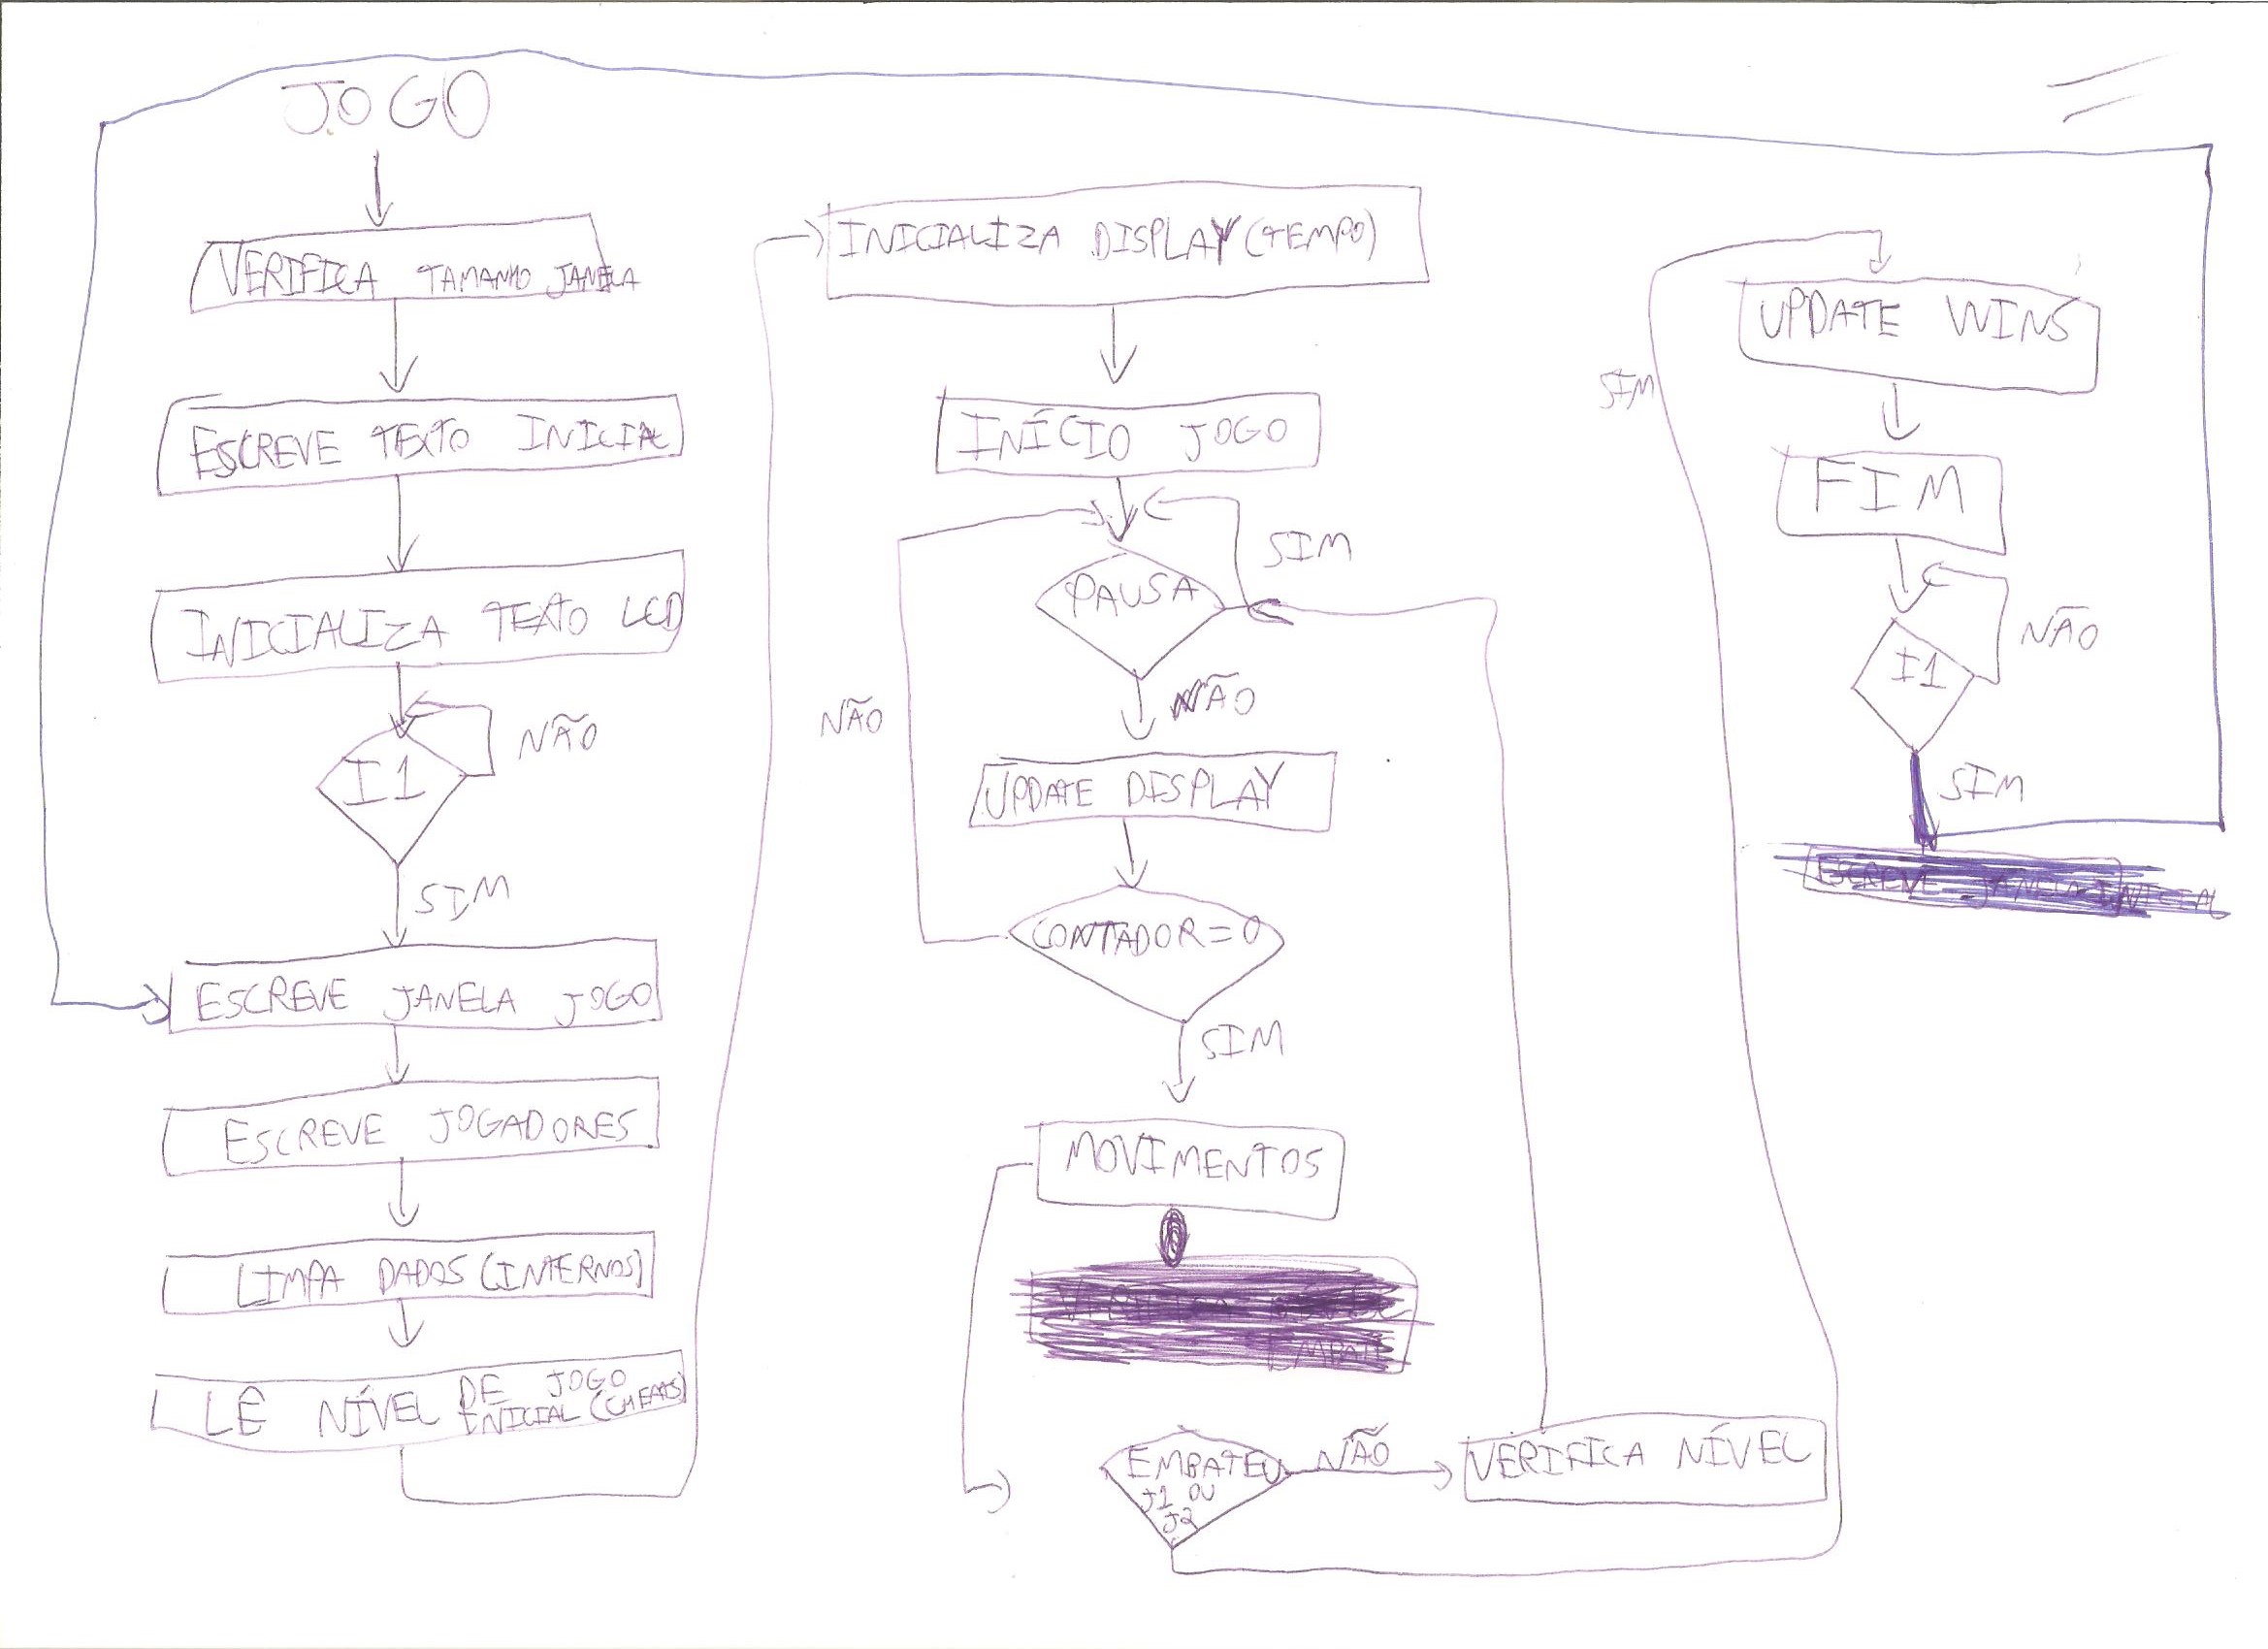 JOGO
VERIFICA TAMANHO JANELA
ESCREVE TEXTO INICIAL
INICIALIZA TEXTO LCD
I1
NÃO
SIM
ESCREVE JANELA JOGO
ESCREVE JOGADORES
LIMPA DADOS (INTERNOS)
LÊ NÍVEL DE JOGO
INICIAL (CHEATS)
INICIALIZA DISPLAY (TEMPO)
INÍCIO JOGO
SIM
PAUSA
NÃO
NÃO
UPDATE DISPLAY
CONTADOR = 0
SIM
MOVIMENTOS
EMBATEU
J1 OU
J2
NÃO
VERIFICA NÍVEL
SIM
UPDATE WINS
FIM
I1
NÃO
SIM